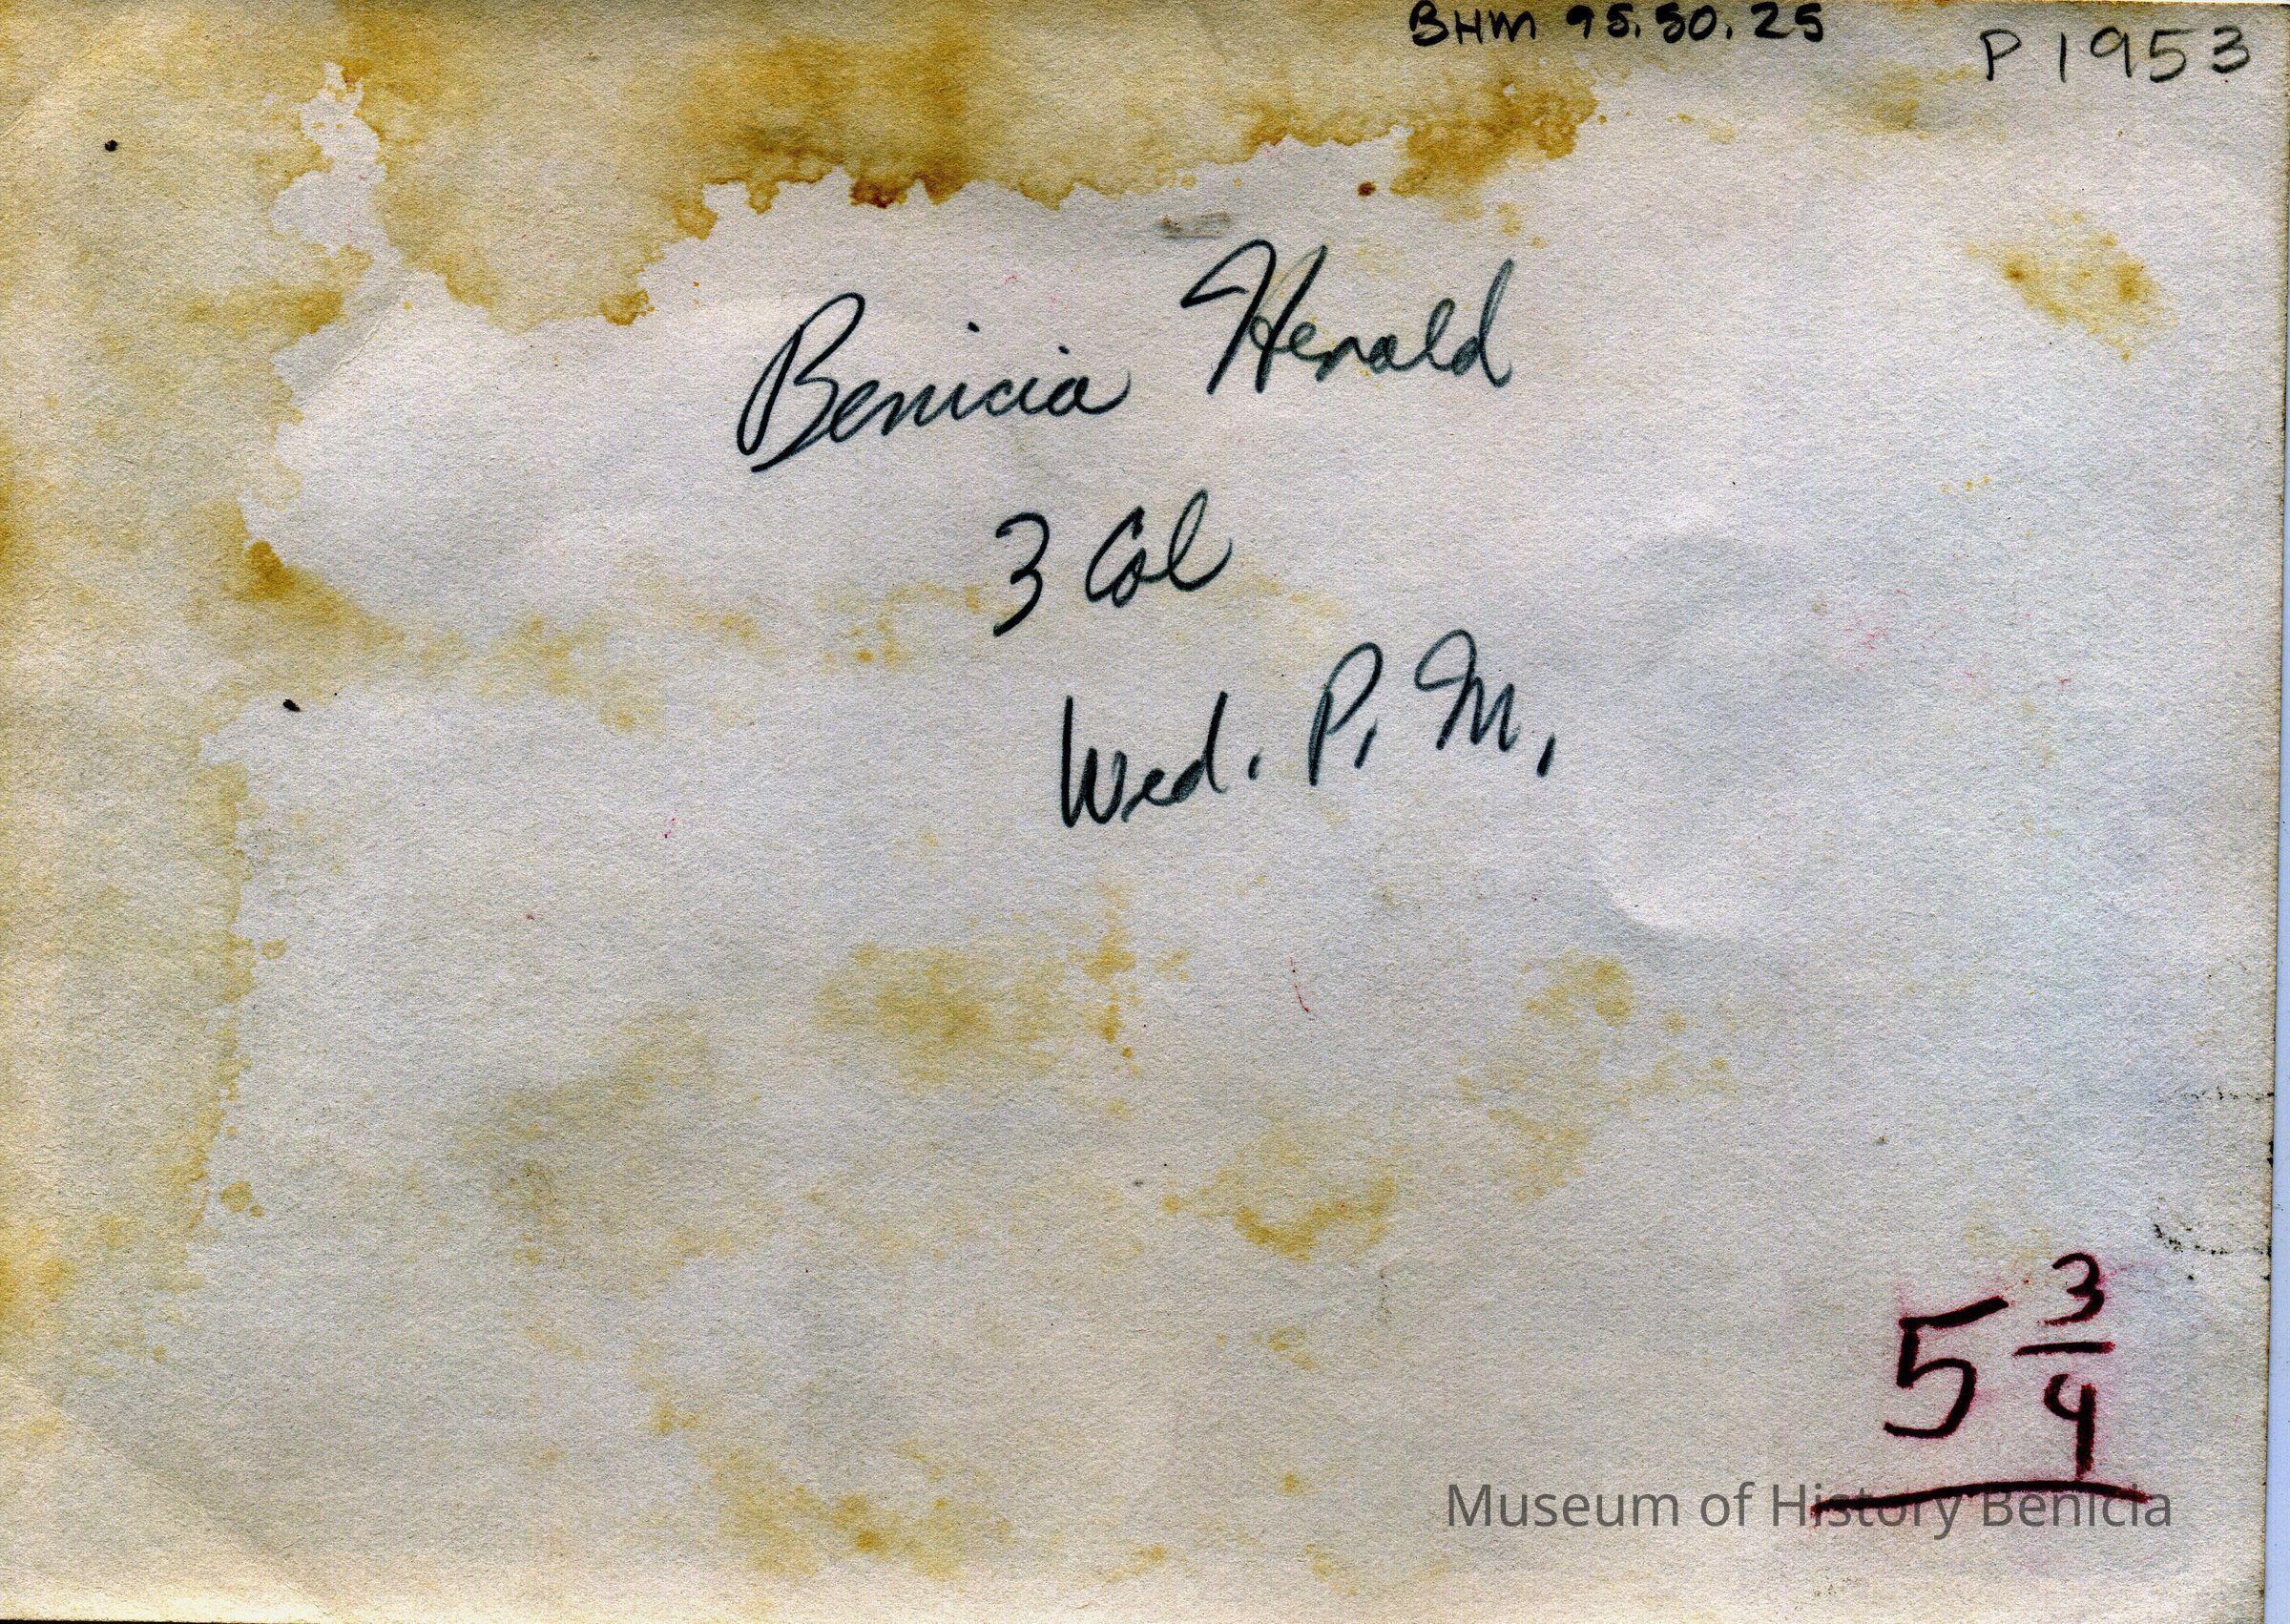 BHM 95.50.25
P1953
Benicia Herald
3 Col
Wed. P. M.
5 3/4
Museum of History Benicia